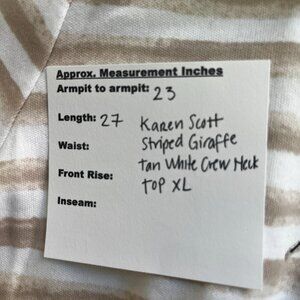 Approx. Measurement Inches
Armpit to armpit: 23
Length: 27 Karen Scott
Striped Giraffe
Waist:
tan White Crew Neck
Front Rise:
top XL
Inseam: